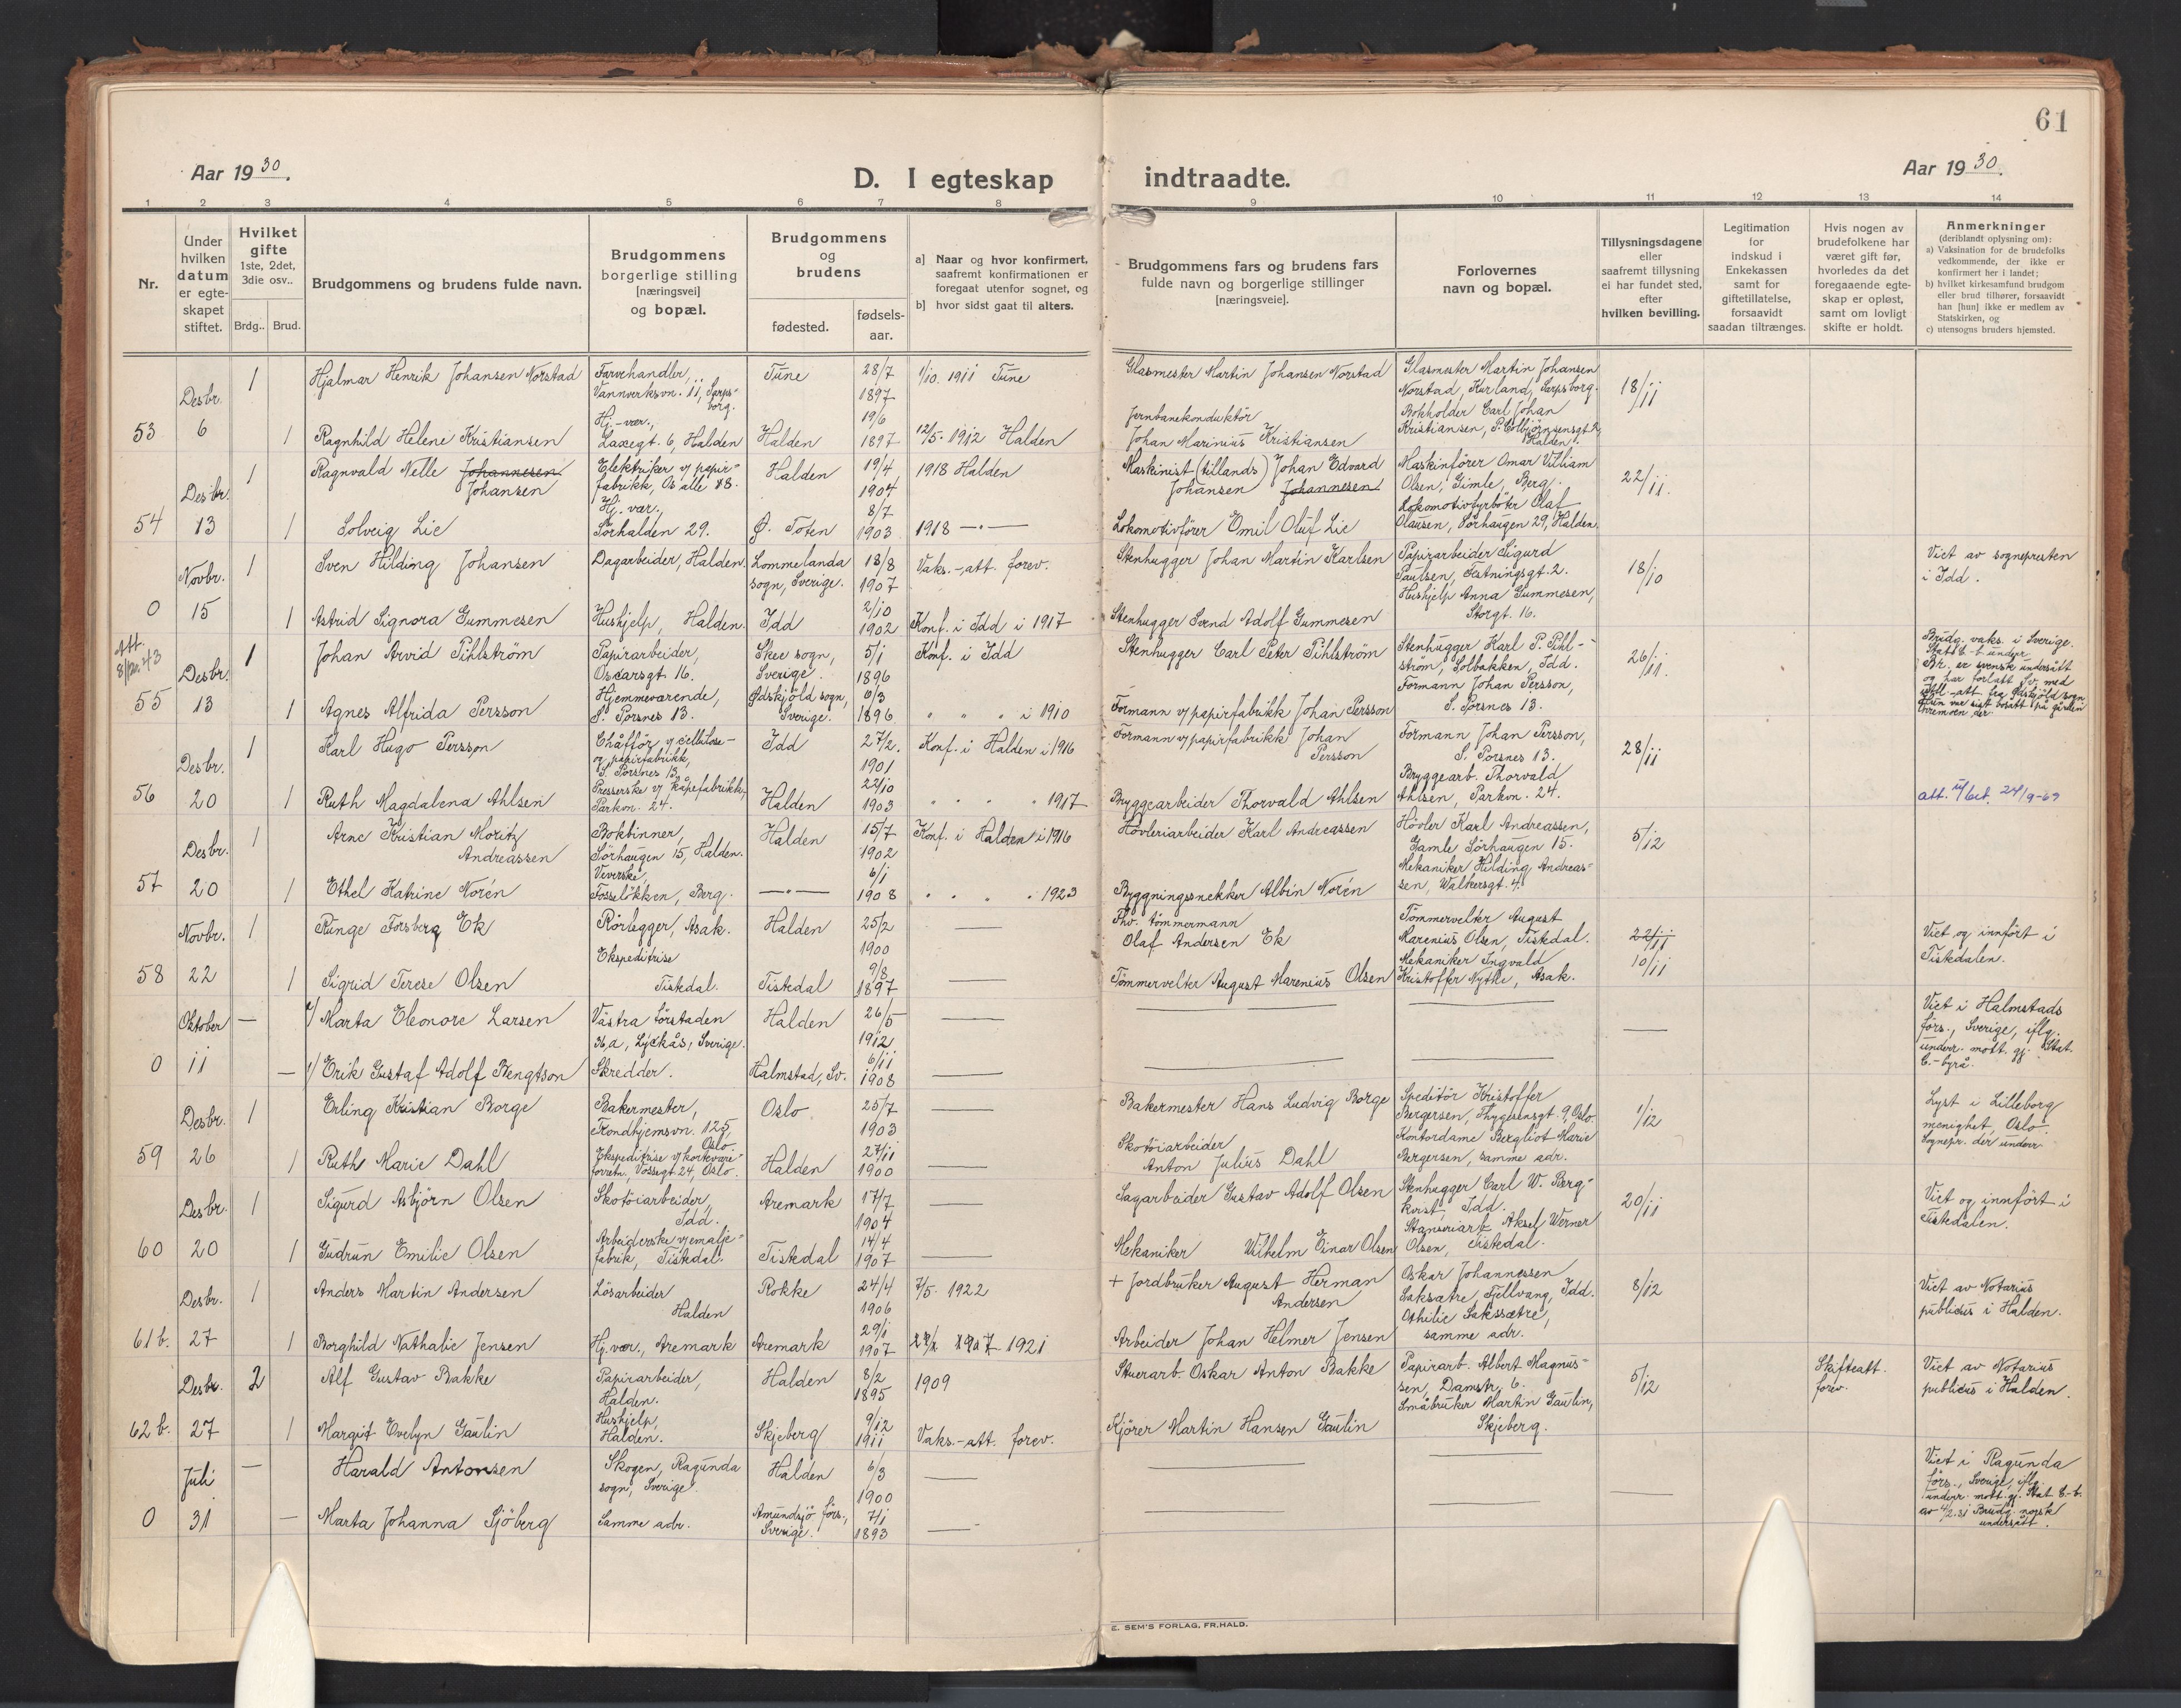 61
Aar 1930.
D. I egteskap indtraadte.
Aar 1930.
1 2 3 4 5 6 7 8 9 10 11 12 13 14
Nr.
Under
hvilken
datum
er egte-
skapet
stiftet.
Hvilket
gifte
1ste, 2det,
3die osv..
Brdg.. Brud.
Brudgommens og brudens fulde navn.
Brudgommens
borgerlige stilling
[næringsvei]
og bopæl.
Brudgommens
og
brudens
fødested.
fødsels-
aar.
a] Naar og hvor konfirmert,
saafremt konfirmationen er
foregaat utenfor sognet, og
b] hvor sidst gaat til alters.
Brudgommens fars og brudens fars
fulde navn og borgerlige stillinger
[næringsveie].
Forlovernes
navn og bopæl.
Tillysningsdagene
eller
saafremt tillysning
ei har fundet sted,
efter
hvilken bevilling.
Legitimation
for
indskud i
Enkekassen
samt for
giftetillatelse,
forsaavidt
saadan tiltrænges.
Hvis nogen av
brudefolkene har
været gift før,
hvorledes da det
foregaaende egte-
skap er opløst,
samt om lovligt
skifte er holdt.
Anmerkninger
(deriblandt oplysning om):
a) Vaksination for de brudefolks
vedkommende, der ikke er
konfirmert her i landet;
b) hvilket kirkesamfund brudgom
eller brud tilhører, forsaavidt
han [hun] ikke er medlem av
Statskirken, og
c) utensogns bruders hjemsted.
53
Desbr.
6
1
Hjalmar Henrik Johansen Norstad
Farvehandler,
Vannverksvn. 11, Sarps-
borg.
Tune
28/7
1897
1/10. 1911 Tune
Glasmester Martin Johansen Norstad
Glasmester Martin Johansen
Norstad, Kurland, Sarpsborg.
18/11
1
Ragnhild Helene Kristiansen
Hj.-vær.,
Laxegt. 6, Halden
Halden
19/6
1897
12/5. 1912 Halden
Jernbanekonduktör
Johan Marinius Kristiansen
Bokholder Carl Johan
Kristiansen, P. Colbjörnsensgt. 2,
Halden.
54
Desbr.
13
1
Ragnvald Nelle Johannesen
Johansen
Elektriker v/ papir-
fabrikk, Os alle 18.
Halden
19/4
1904
1918 Halden
Maskinist (tillands) Johan Edvard
Johansen Johannesen
Maskinförer Omar Villiam
Olsen, Gimle, Berg.
22/11.
1
Solveig Lie
Hj. vær.,
Sörhalden 29.
Ø. Toten
8/7
1903
1918 —"—
Lokomotivförer Emil Oluf Lie
Lokomotivfyrböter Olaf
Olausen, Sörhaugen 29, Halden.
0
Novbr.
15
1
Sven Hilding Johansen
Dagarbeider, Halden.
Lommelanda
sogn, Sverige.
18/8
1907
Vaks.-att. forev.
Stenhugger Johan Martin Karlsen
Papirarbeider Sigurd
Paulsen, Festningsgt. 2.
18/10
Viet av sognepresten
i Idd.
1
Astrid Signora Gummesen
Hushjelp, Halden.
Idd
2/10
1902
Konf. i Idd i 1917
Stenhugger Svend Adolf Gummesen
Hushjelp Anna Gummesen,
Storgt. 16.
Att.
55
Desbr.
13
1
Johan Arvid Pihlström
Papirarbeider,
Oscarsgt 16.
Skee sogn,
Sverige.
5/1
1896
Konf. i Idd
Stenhugger Carl Peter Pihlström
Stenhugger Karl P. Pihl-
ström, Solbakken, Idd.
26/11.
Brudg. vaks. i Sverige.
Br. er svensk undersått
og har forlatt Sv. med
1
Agnes Alfrida Persson
Hjemmeværende,
S. Porsnes 13.
Ødskjöld sogn,
Sverige.
6/3
1896
" " " i 1910
Formann v/ papirfabrikk Johan Persson
Formann Johan Persson,
S. Porsnes 13.
56
Desbr.
20
1
Karl Hugo Persson
Chåfför v/ cellulose-
og papirfabrikk,
S. Porsnes 13.
Idd
27/2.
1901
Konf. i Halden i 1916
Formann v/ papirfabrikk Johan
Persson
Formann Johan Persson,
S. Porsnes 13.
28/11
1
Ruth Magdalena Ahlsen
Presserske v/ kåpefabrikk,
Parkvn. 24.
Halden
22/10
1903
" " " " 1917
Bryggearbeider Thorvald Ahlsen
Bryggearb. Thorvald
Ahlsen, Parkvn. 24.
24/9-69
57
Desbr.
20
1
Arne Kristian Moritz
Andreassen
Boktinner,
Sörhaugen 15, Halden.
Halden
15/7
1902
Konf. i Halden i 1916
Hövleriarbeider Karl Andreassen
Hövler Karl Andreassen,
Gamle Sörhaugen 15.
5/12
1
Ethel Katrine Norén
Veverske,
Fosselökken, Berg.
—"—
6/1
1908
" " " " 1923
Byggningssnekker Albin Norén
Mekaniker Hilding Andreas-
sen, Walkersgt. 4.
58
Novbr.
22
1
Runge Forsberg Ek
Rörlegger, Asak.
Halden
25/2
1900
—
Fhv. tömmermann
Olaf Andersen Ek
Tömmervelter August
Marenius Olsen, Tistedal.
22/11
10/11
Viet og innfört i
Tistedalen.
1
Sigrid Terese Olsen
Ekspeditrise
Tistedal.
Tistedal
9/8
1897
—
Tömmervelter August Marenius Olsen
Mekaniker Ingvald
Kristoffer Nythe, Asak.
0
Oktober
11
—
2/ Marta Eleonore Larsen
Västra förstaden
36a, Lyckås, Sverige.
Halden
26/5
1912
—
—
—
—
Viet i Halmstads
förs., Sverige, iflg.
underr. mott. gj. Stat.
C.-byrå.
—
1/ Erik Gustaf Adolf Bengtson
Skredder.
Halmstad, Sv.
6/11
1908
—
—
—
59
Desbr.
26
1
Erling Kristian Borge
Bakermester,
Trondhjemsvn. 125,
Oslo.
Oslo
25/7
1903
—
Bakermester Hans Ludvig Borge
Speditör Kristoffer
Bergersen, Thygesensgt. 9, Oslo.
1/12
Lyst i Lilleborg
menighet, Oslo.
Sognepr. der underr.
1
Ruth Marie Dahl
Ekspeditrise v/ kortevare-
forretn., Vossegt 24, Oslo.
Halden
27/11
1900
—
Skotöiarbeider
Anton Julius Dahl
Kontordame Bergliot Marie
Bergersen, samme adr.
60
Desbr.
20
1
Sigurd Asbjörn Olsen
Skotöiarbeider,
Idd.
Aremark
17/7
1904
—
Sagarbeider Gustav Adolf Olsen
Stenhugger Carl W. Berg-
kvist, Idd.
20/11
Viet og innfört i
Tistedalen.
1
Gudrun Emilie Olsen
Arbeiderske v/ emalje-
fabrik, Tistedal.
Tistedal
14/4
1907
—
Mekaniker Wilhelm Einar Olsen
Stanseriarb. Aksel Werner
Olsen, Tistedal.
61 b.
Desbr.
27
1
Anders Martin Andersen
Lösarbeider
Halden
Rokke
24/4
1906
7/5. 1922
+ Jordbruker August Herman
Andersen
Oskar Johannessen
Saksætre, Fjellvang, Idd.
8/12
Viet av Notarius
publicus i Halden.
1
Borghild Nathalie Jensen
Hj.vær., Aremark
Aremark
29/1
1907
1921
Arbeider Johan Helmer Jensen
Othilie Sakssætre,
samme adr.
62 b.
Desbr.
27
2
Alf Gustav Bakke
Papirarbeider,
Halden.
Halden
8/2
1895
1909
Stuerarb. Oskar Anton Bakke
Papirarb. Albert Magnus-
sen, Damstr. 6.
5/12
Skifteatt.
forev.
Viet av Notarius
publicus i Halden.
1
Margit Evelyn Gaulin
Hushjelp,
Halden.
Skjeberg
9/12
1911
Vaks.-att. forev.
Kjörer Martin Hansen Gaulin
Småbruker Martin Gaulin,
Skjeberg.
0
Juli
31
—
Harald Antonsen
Skogen, Ragunda
sogn, Sverige.
Halden
6/3
1900
—
—
—
—
Viet i Ragunda
förs., Sverige, iflg.
underr. mott. gj. Stat. C.-b.
av 4/2.31 Brudg. norsk
undersått.
—
Marta Johanna Sjöberg
Samme adr.
Amundsjö förs.,
Sverige.
7/1
1893
—
—
—
E. SEM'S FORLAG, FR.HALD.